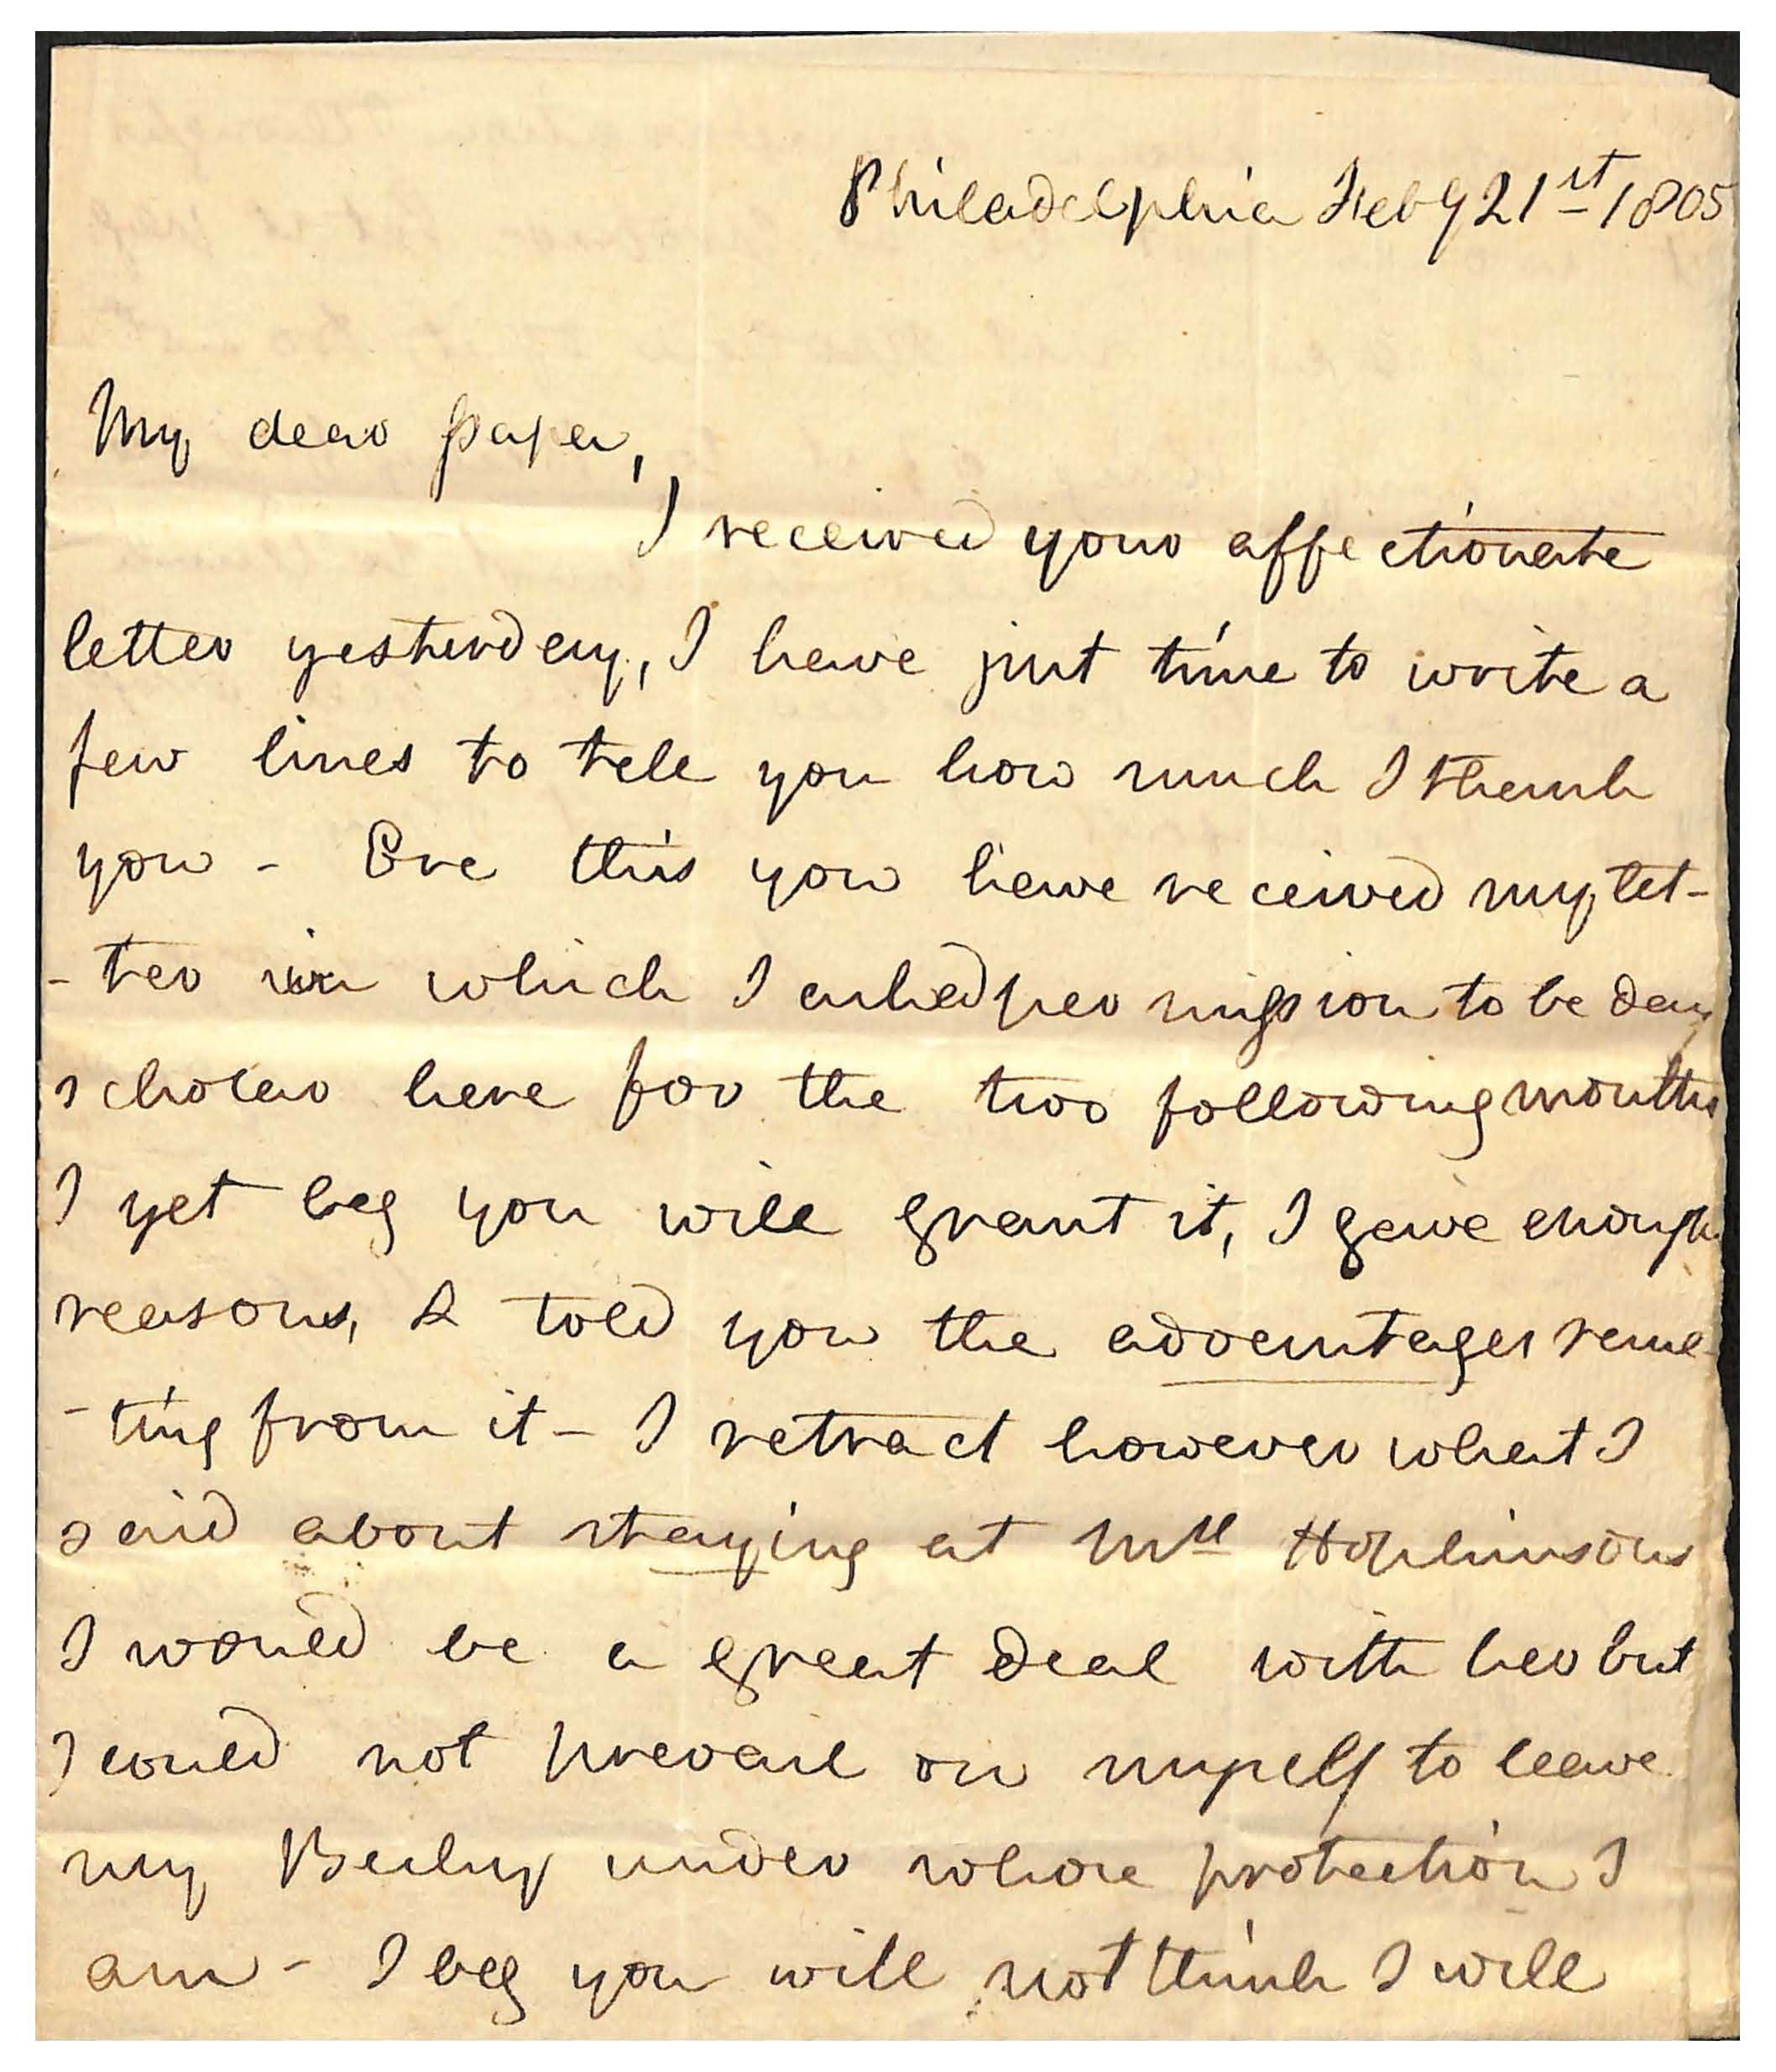 Philadelphia Feby 21st 1805
My dear papa,
I received your affectionate
letter yesterday, I have just time to write a
few lines to tell you how much I thank
you - Ere this you have received my let-
-ter in which I asked permission to be day
scholar here for the two following months
I yet beg you will grant it, I gave enough
reasons, & told you the advantages resul-
-ting from it - I retract however what I
said about staying at Mrs Hopkinsons
I would be a great deal with her but
I could not prevail on myself to leave
my under whose protection I
am - I beg you will not think I will